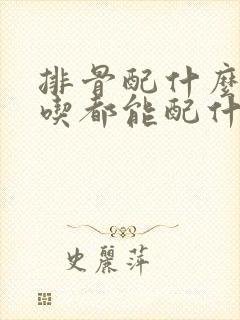 排骨配什麼
喫都能配什
史麗萍